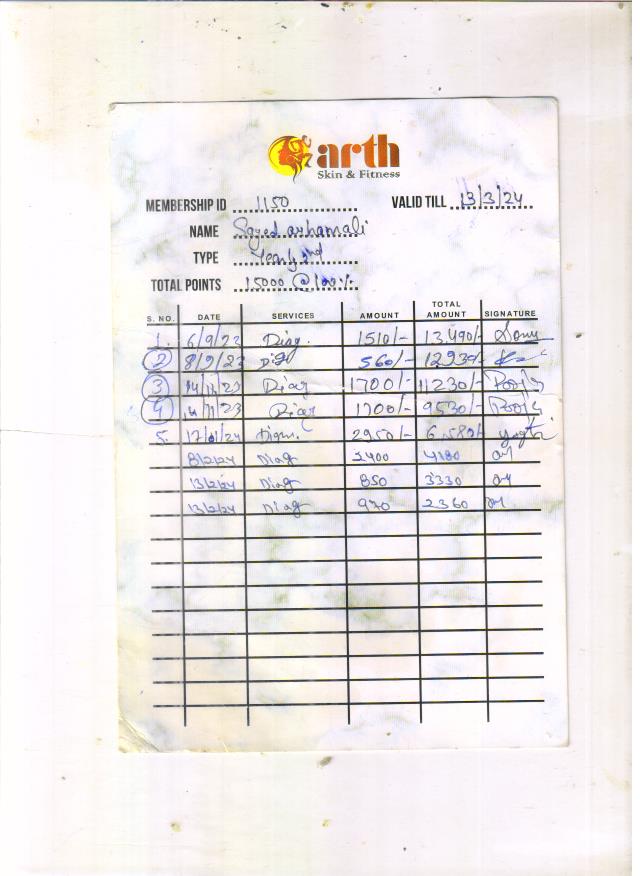 arth
Skin & Fitness
MEMBERSHIP ID 1150 VALID TILL 13/3/24
NAME Sayed arhamali
TYPE Yearly
TOTAL POINTS 15000 @ 100%
S. NO. DATE SERVICES AMOUNT TOTAL AMOUNT SIGNATURE
1. 6/9/23 Diag. 1510/- 13,490/- Sonu
2 8/9/23 560/- 12930/-
3 14/11/23 Diag 1700/- 11230/- Pooja
4 14/11/23 Diag 1700/- 9530/- Pooja
5. 17/01/24 2950/- 6,580/-
8/2/24 Diag 2400 4180
13/2/24 Diag 850 3330
13/2/24 Diag 970 2360